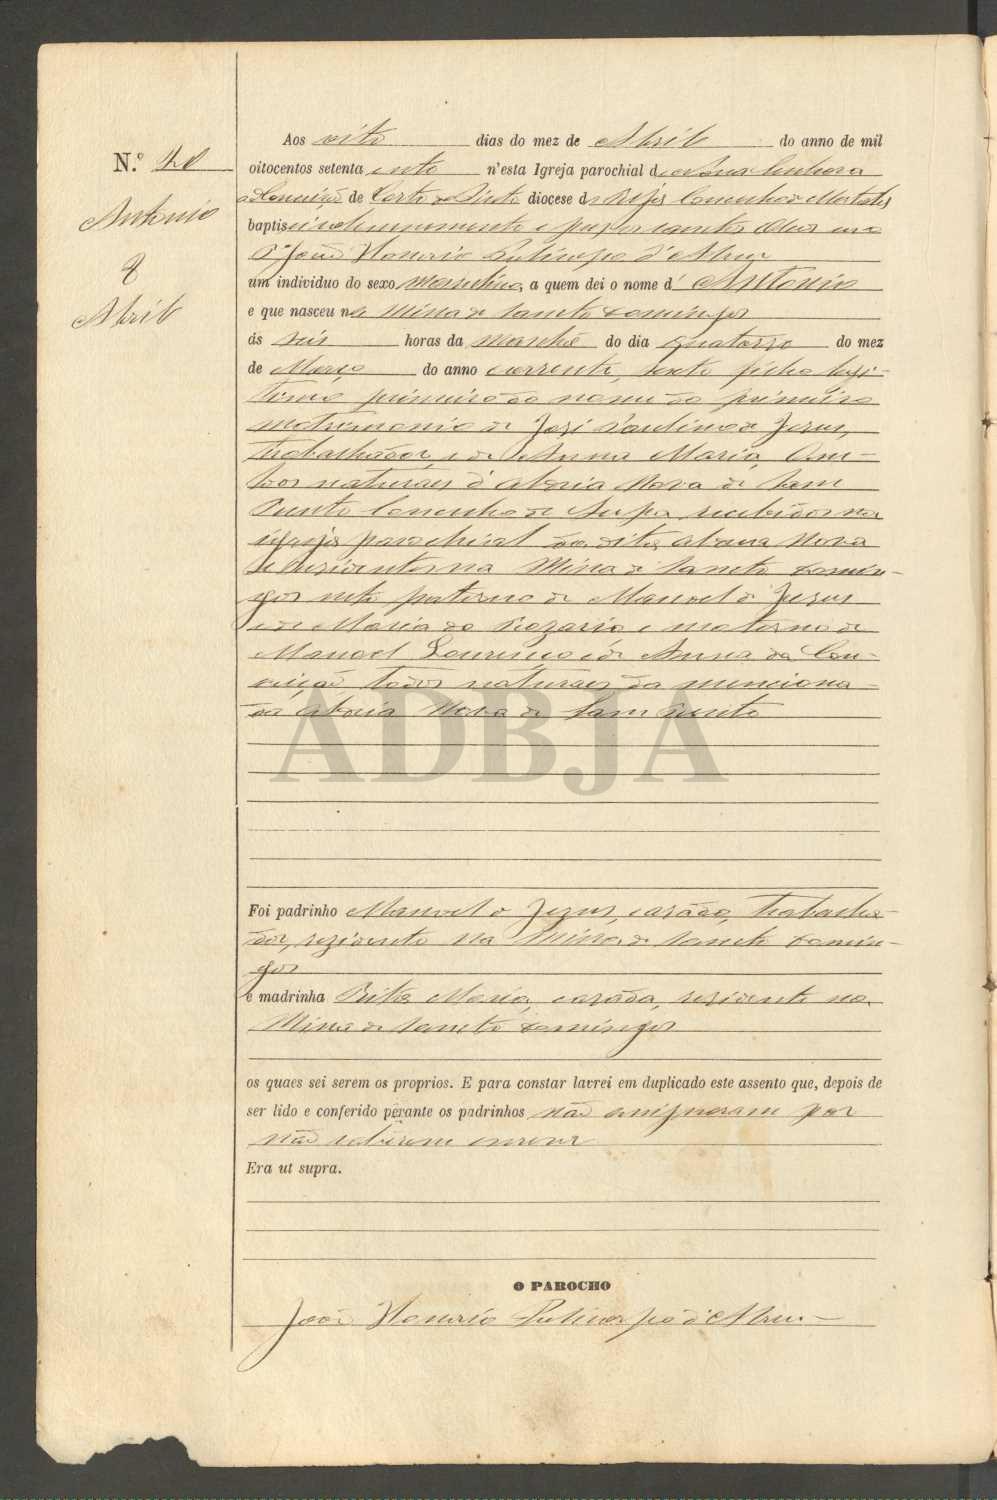 N.º 40
Antonio
8
Abril
Aos oito dias do mez de Abril do anno de mil
oitocentos setenta e oito n'esta Igreja parochial de Nossa Senhora
da Conceição de Corte do Pinto diocese de Beja Concelho de Mertola
baptisei solemnemente e puz os santos oleos eu o
P.e João Honorio Policarpo d'Abreu
um individuo do sexo masculino, a quem dei o nome d' Antonio
e que nasceu na Mina de Sancto Domingos
ás seis horas da manhã do dia quatorze do mez
de Março do anno corrente, sexto filho legi-
timo primeiro do nome do primeiro
matrimonio de José Paulino de Jezus,
trabalhador, e de Anna Maria, Am-
bos naturaes d' Aldeia Nova de Sam
Bento Concelho de Serpa recebidos na
igreja parochial da dita Aldeia Nova
e residentes na Mina de Sancto Domin-
gos neto paterno de Manoel de Jezus
e de Maria do Rozario e materno de
Manoel Lourenço e de Anna da Con-
ceição todos naturaes da menciona-
da Aldeia Nova de Sam Bento
ADBJA
Foi padrinho Manoel de Jezus, casado, trabalha-
dor, rezidente na Mina de Sancto Domin-
gos
e madrinha Rita Maria, casada, rezidente na
Mina de Sancto Domingos
os quaes sei serem os proprios. E para constar lavrei em duplicado este assento que, depois de
ser lido e conferido perante os padrinhos não assignaram por
não saberem escrever
Era ut supra.
O PAROCHO
João Honorio Policarpo d'Abreu